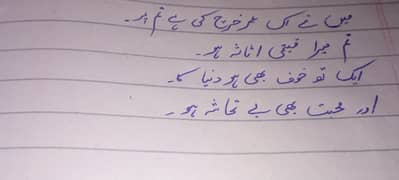 میں نے اک عمر خرچ کی ہے تم پر۔
تم میرا قیمتی اثاثہ ہو۔
ایک تو خوف بھی ہو دنیا کا۔
اور محبت بھی بے تحاشہ ہو۔